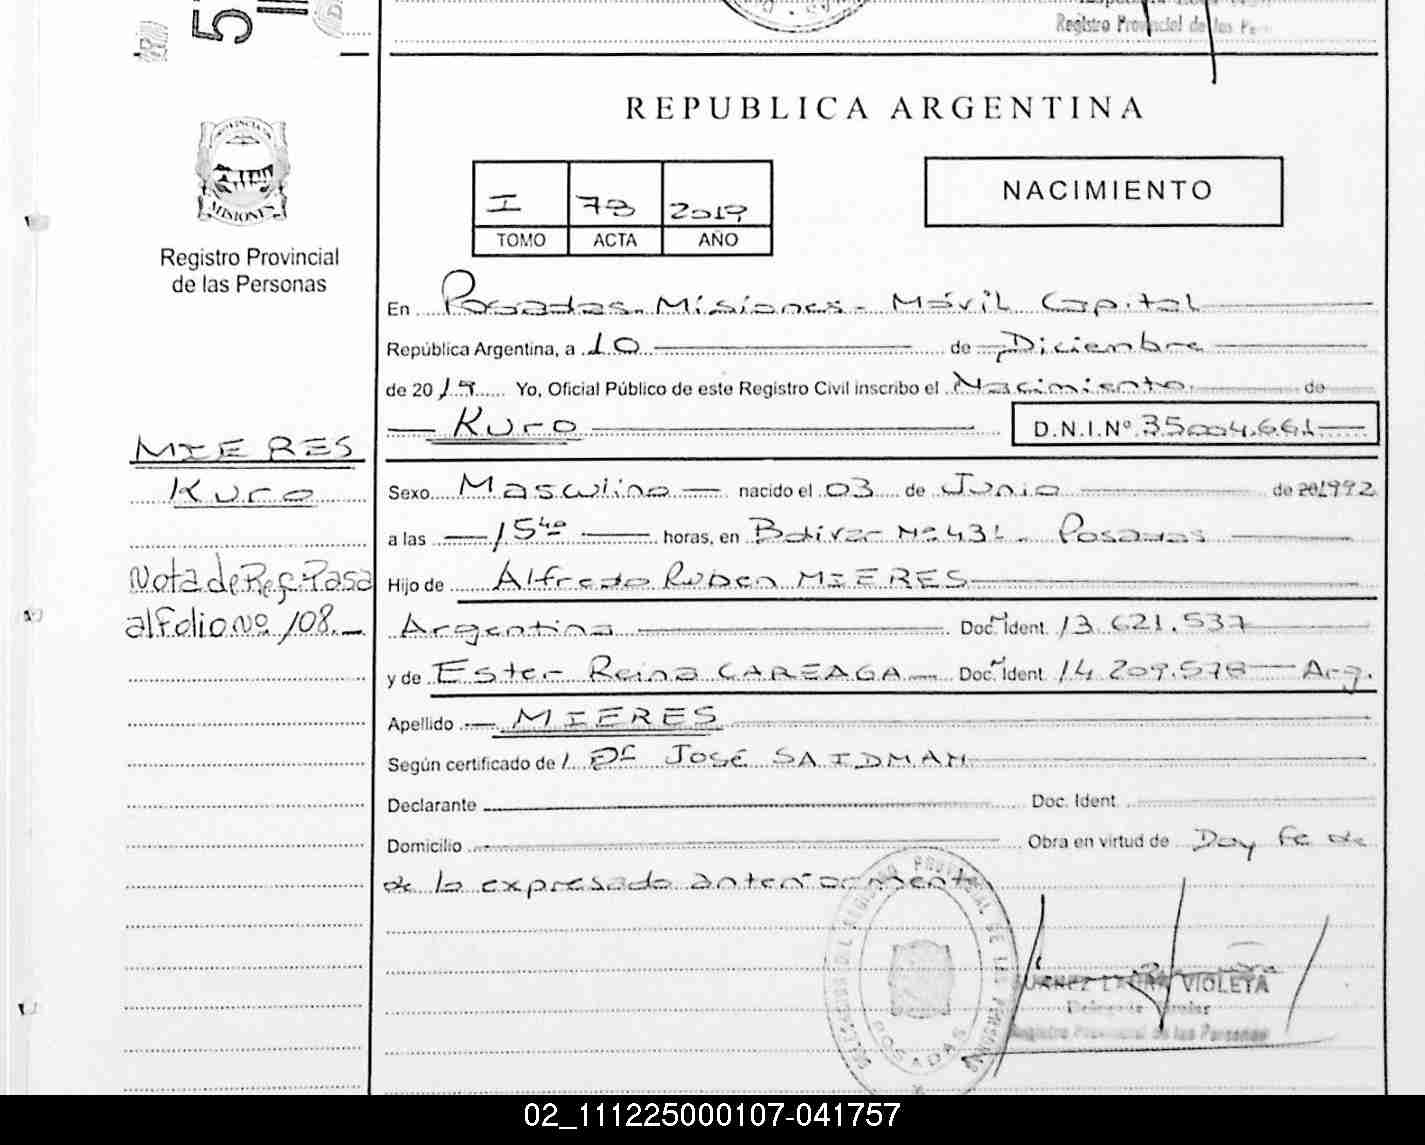 Registro Provincial de las Pe
REPUBLICA ARGENTINA
I 73 2019
TOMO ACTA AÑO
NACIMIENTO
PROVINCIA DE
MISIONES
Registro Provincial
de las Personas
En Posadas - Misiones - Móvil Capital
República Argentina, a 10 de Diciembre
de 2019 Yo, Oficial Público de este Registro Civil inscribo el Nacimiento de
Kuro D.N.I.Nº 35.004.661
MIERES
Kuro
Nota de Ref. Pasa
al Folio Nº 108.
Sexo Masculino nacido el 03 de Junio de 1992
a las 15 40 horas, en Bolivar Nº 431 - Posadas
Hijo de Alfredo Ruben MIERES
Argentina Doc. Ident. 13.621.537
y de Ester Reina CAREAGA Doc. Ident. 14.209.578 Arg.
Apellido MIERES
Según certificado de Dr JOSÉ SAIDMAN
Declarante Doc. Ident.
Domicilio Obra en virtud de Doy fe de
de lo expresado anteriormente
REGISTRO PROVINCIAL DE LAS PERSONAS
POSADAS
LAURA VIOLETA
Registro Provincial de las Personas
02_111225000107-041757